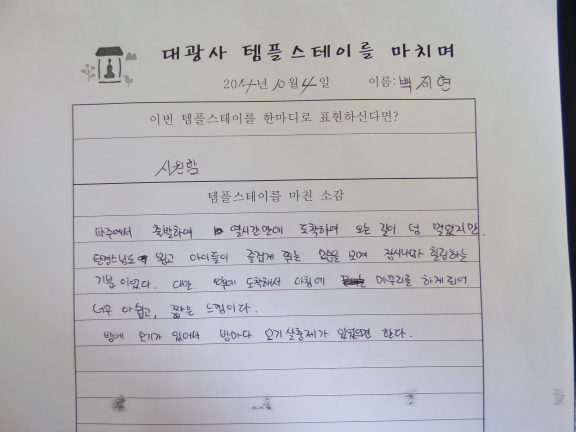 대광사 템플스테이를 마치며
2014년 10월 4일 이름: 백지현
이번 템플스테이를 한마디로 표현하신다면?
시원함
템플스테이를 마친 소감
파주에서 출발하여 열시간만에 도착하여 오는 길이 멀었지만.
뵙고 아이들이 즐겁게 모습을 보며 잠시나마 힐링하는
기분이었다. 대만 오후에 도착해서 아침에 마무리를 하게되어
너무 아쉽고, 짧은 느낌이다.
방에 모기가 있어서 방마다 모기살충제가 있었으면 한다.